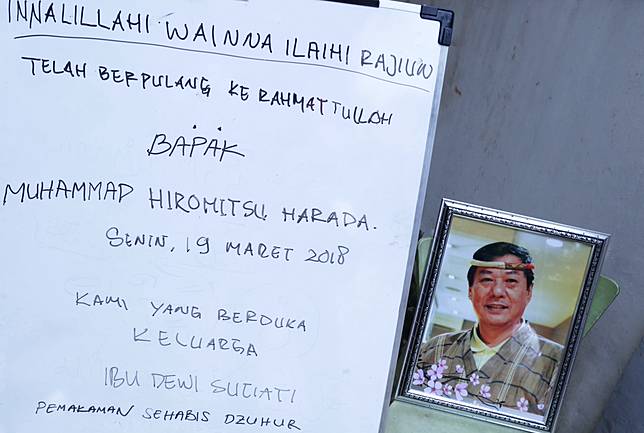 INNALILLAHI WAINNA ILAIHI RAJIUN
TELAH BERPULANG KE RAHMATTULLOH
BAPAK
MUHAMMAD HIROMITSU HARADA.
SENIN, 19 MARET 2018
KAMI YANG BERDUKA
KELUARGA
IBU DEWI SUCIATI
PEMAKAMAN SEHABIS DZUHUR